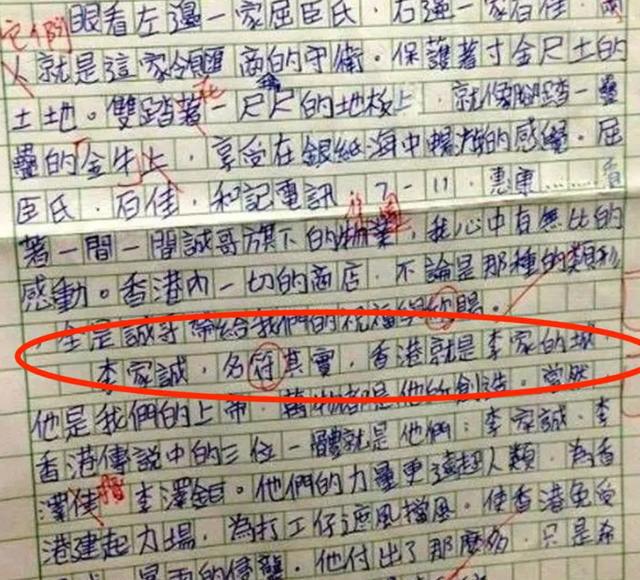 它們
眼看左邊一家屈臣氏．右邊一家百佳．兩
人就是這家領匯商的守衛．保護著寸金尺土的
土地。雙踏著一尺尺的地板上．就像腳踏一疊
疊的金牛上．享受在銀紙海中暢游的感覺．屈
臣氏．百佳．和記電訊．7-11．惠康……看
著一間一間誠哥旗下的物業，我心中有無比的
感動。香港內一切的商店．不論是那種的類型
全是誠哥帶給我們的祝福與恩賜。
李家誠．名符其實．香港就是李家的城．
他是我們的上帝．萬物都是他的創造。當然．
香港傳說中的三位一體就是他們：李家誠．李
澤楷 李澤鉅。他們的力量更遠超人類．為香
港建起力場．為打工仔遮風擋風．使香港免受
暴雨的侵襲．他付出了那麼多．只是希